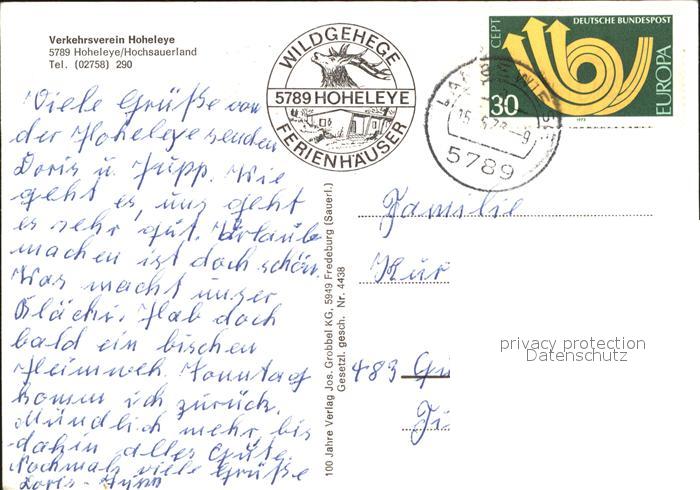 Verkehrsverein Hoheleye
5789 Hoheleye/Hochsauerland
Tel. (02758) 290
WILDGEHEGE
5789 HOHELEYE
FERIENHÄUSER
CEPT
DEUTSCHE BUNDESPOST
EUROPA
30
1973
5789
Viele Grüße von
der Hoheleye senden
Doris u. Jupp. Wie
geht es, uns geht
es sehr gut. Urlaub
machen ist doch schön.
Was macht unser
Hab doch
bald ein bischen
Heimweh. Sonntag
komm ich zurück.
Mündlich mehr, bis
dahin alles Gute
Nochmals viele Grüße
Doris - Jupp
100 Jahre Verlag Jos. Grobbel KG, 5949 Fredeburg (Sauerl.)
Gesetzl. gesch. Nr. 4438
Familie
Kur
483 Gü
privacy protection
Datenschutz